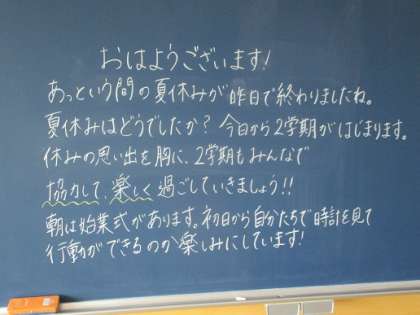 おはようございます!
あっという間の夏休みが昨日で終わりましたね。
夏休みはどうでしたか?今日から2学期がはじまります。
休みの思い出を胸に、2学期もみんなで
協力して、楽しく過ごしていきましょう!!
朝は始業式があります。初日から自分たちで時計を見て
行動ができるのか楽しみにしています!